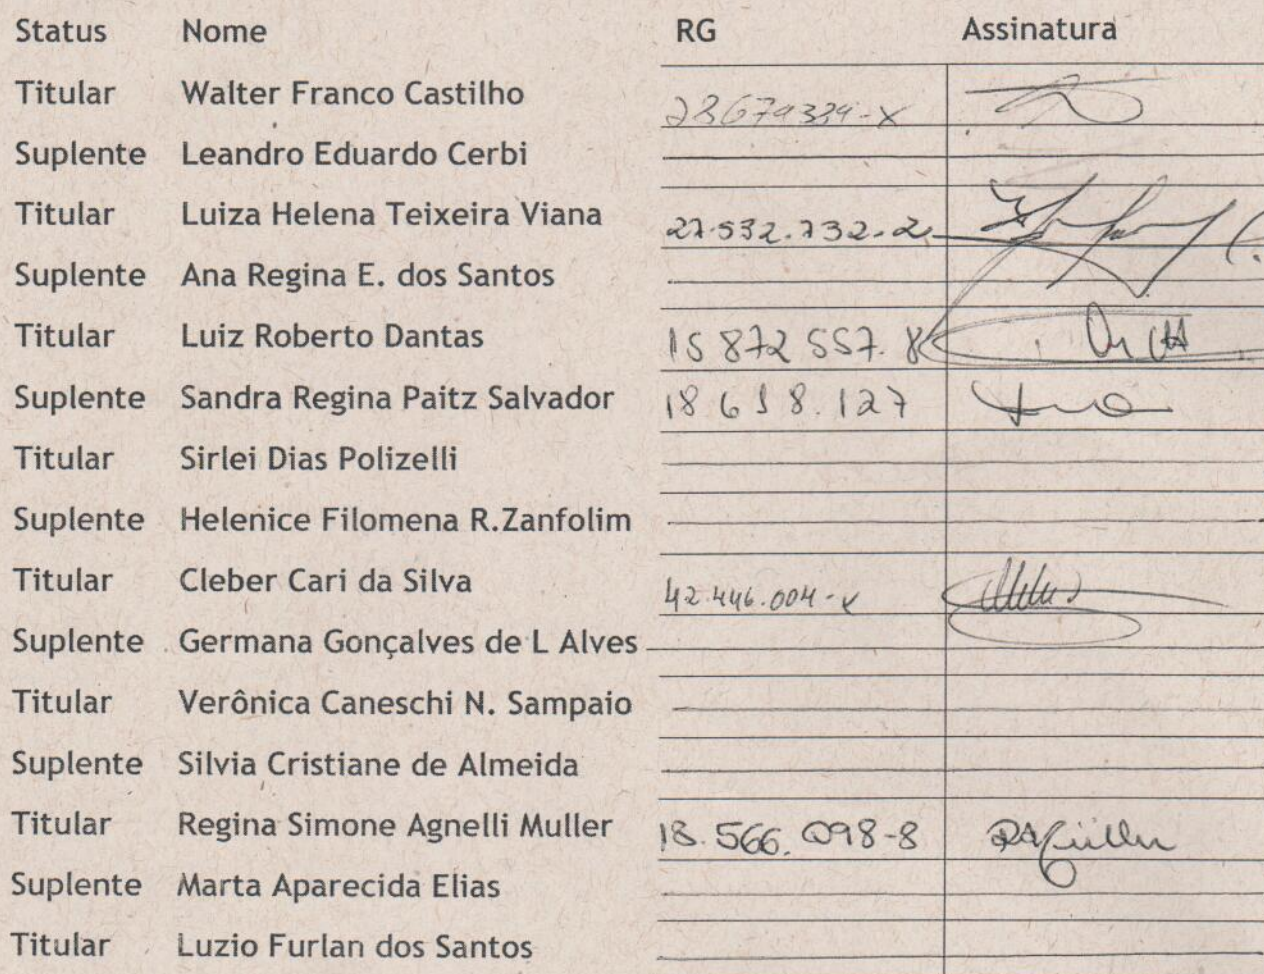 Status Nome RG Assinatura
Titular Walter Franco Castilho 28674334-X
Suplente Leandro Eduardo Cerbi
Titular Luiza Helena Teixeira Viana 27.532.732-2
Suplente Ana Regina E. dos Santos
Titular Luiz Roberto Dantas 15 872 557.8
Suplente Sandra Regina Paitz Salvador 18 618.127
Titular Sirlei Dias Polizelli
Suplente Helenice Filomena R.Zanfolim
Titular Cleber Cari da Silva 42.446.004-x
Suplente Germana Gonçalves de L Alves
Titular Verônica Caneschi N. Sampaio
Suplente Silvia Cristiane de Almeida
Titular Regina Simone Agnelli Muller 18.566.098-8
Suplente Marta Aparecida Elias
Titular Luzio Furlan dos Santos